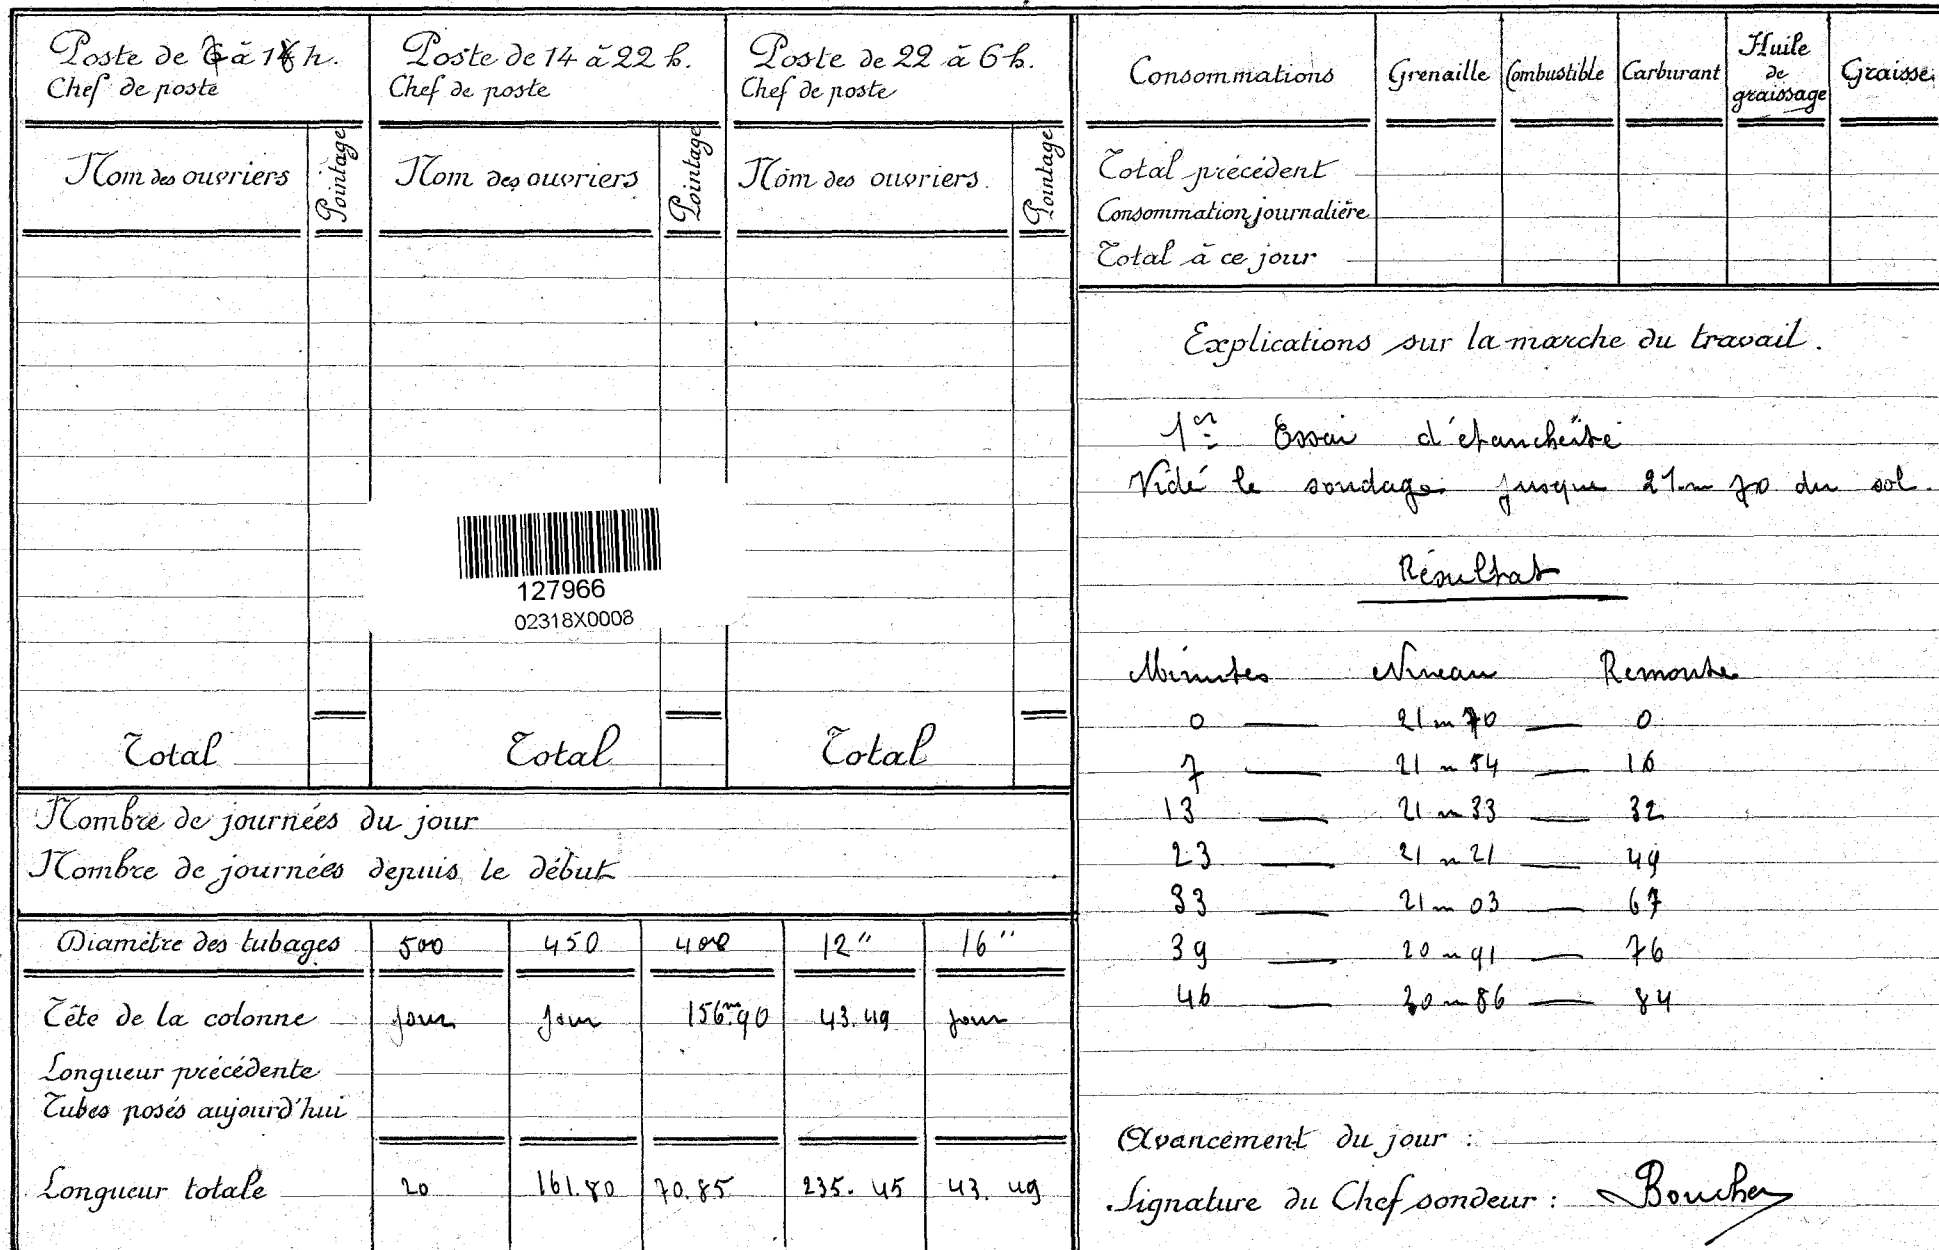 Poste de 6 à 14 h.
Chef de poste
Nom des ouvriers
Pointage
Total
Poste de 14 à 22 h.
Chef de poste
Nom des ouvriers
Pointage
Total
Poste de 22 à 6 h.
Chef de poste
Nom des ouvriers
Pointage
Total
127966
02318X0008
Nombre de journées du jour
Nombre de journées depuis le début
Diamètre des tubages 500 450 400 12" 16"
Tête de la colonne jour jour 156m.90 43.49 jour
Longueur précédente
Tubes posés aujourd'hui
Longueur totale 20 161.80 70.85 235.45 43.49
Consommations Grenaille Combustible Carburant Huile de graissage Graisse
Total précédent
Consommation journalière
Total à ce jour
Explications sur la marche du travail.
1er Essai d'étancheïté
Vidé le sondage jusque 21m70 du sol.
Résultat
Minutes Niveau Remonte
0 — 21m70 — 0
7 — 21m54 — 16
13 — 21m33 — 32
23 — 21m21 — 49
33 — 21m03 — 67
39 — 20m91 — 76
46 — 20m86 — 84
Avancement du jour :
Signature du Chef sondeur : Boucher